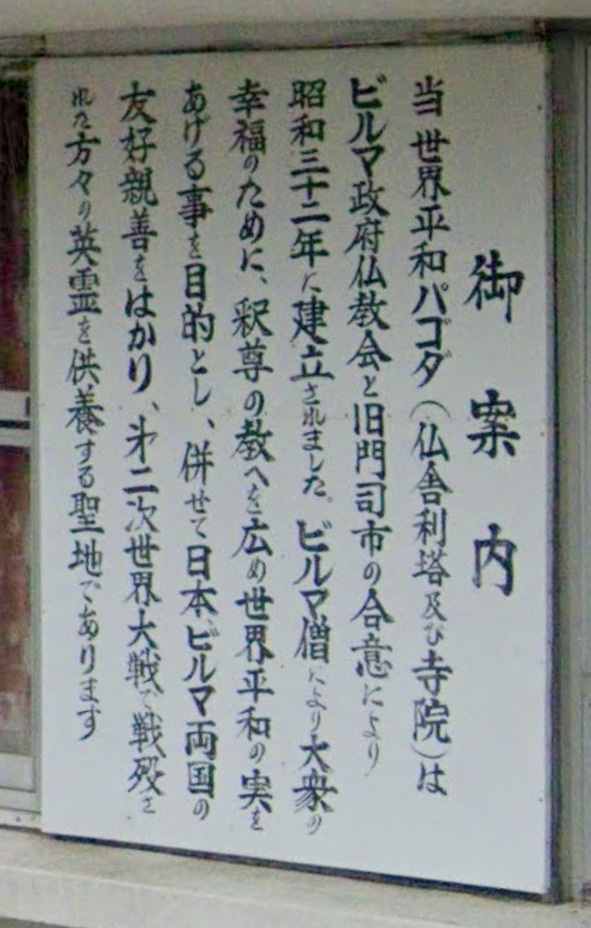 御案内
当世界平和パゴダ(仏舎利塔及び寺院)は
ビルマ政府仏教会と旧門司市の合意により
昭和三十二年に建立されました。ビルマ僧により大衆の
幸福のために、釈尊の教へを広め世界平和の実を
あげる事を目的とし、併せて日本ビルマ両国の
友好親善をはかり、㐧二次世界大戦で戦歿さ
れた方々の英霊を供養する聖地であります